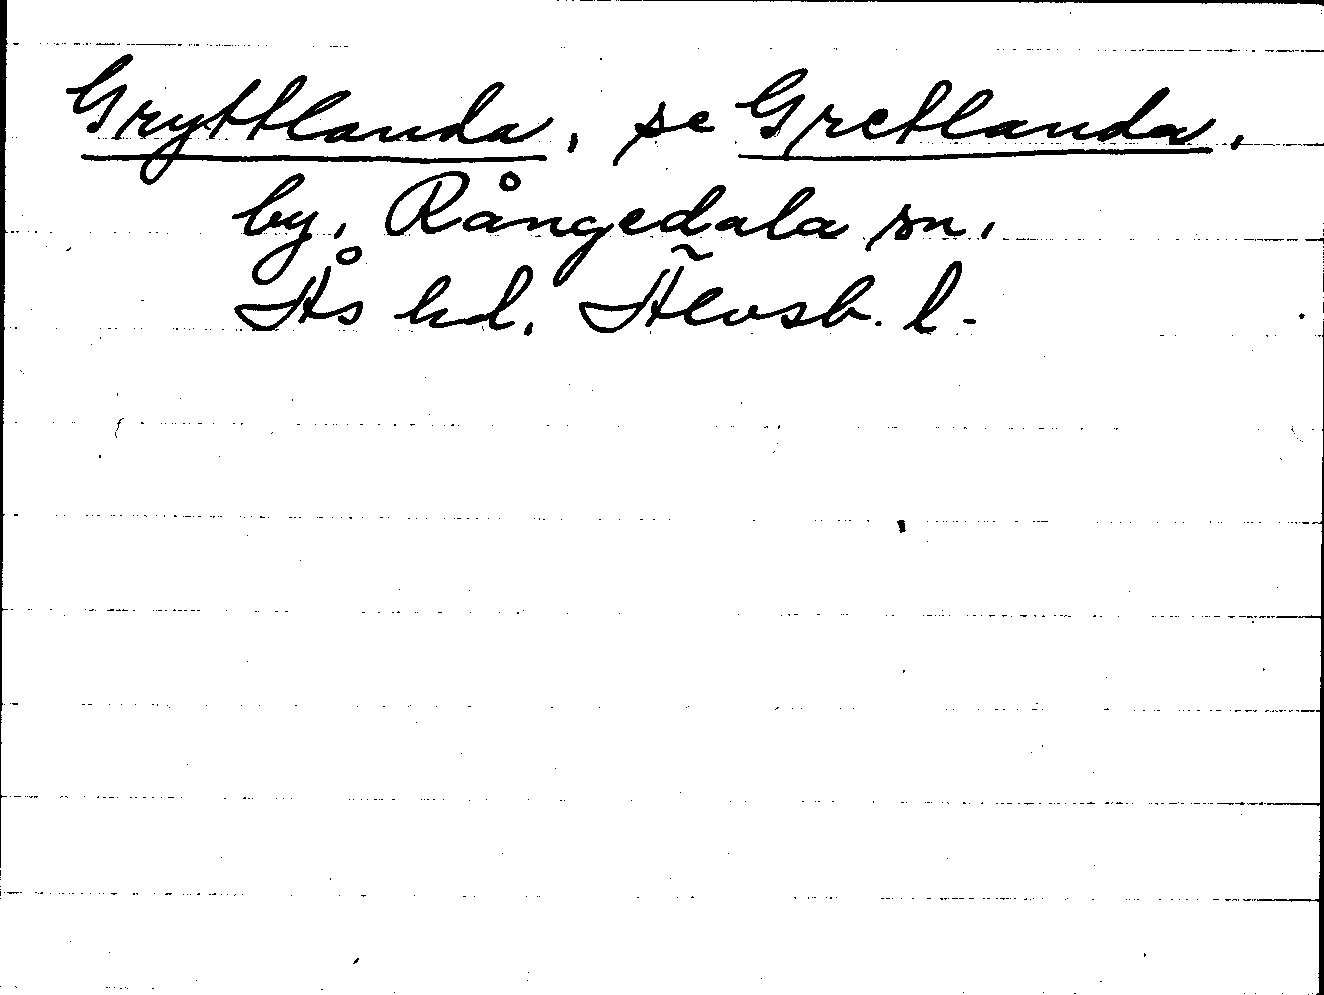 Gryttlanda, se Gretlanda,
by, Rångedala sn.
Ås hd. Älvsb. l.